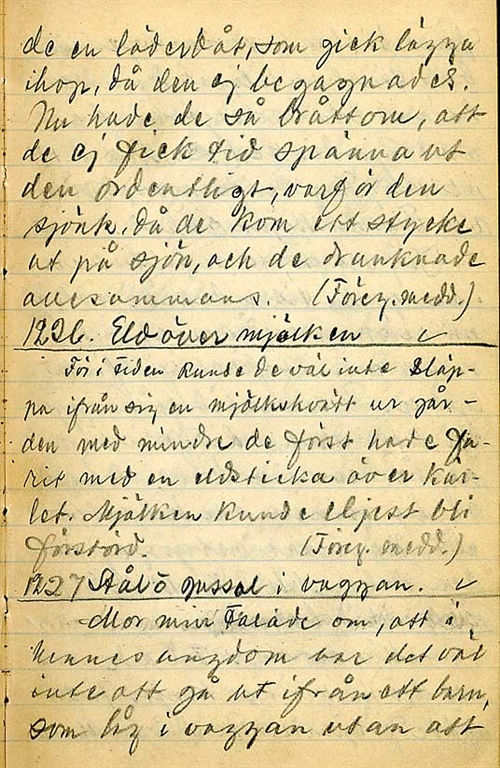 de en läderbåt, som gick lägga
ihop, då den ej begagnades.
Nu hade de så bråttom, att
de ej fick tid spänna ut
den ordentligt, varför den
sjönk, då de kom ett stycke
ut på sjön, och de drunknade
allesammans. (Föreg. medd.)
1226. Eld över mjölken
Förr i tiden kunde de väl inte släp-
pa ifrån sig en mjölkskvätt ur går-
den med mindre de först hade fa-
rit med en eldsticka över kär-
let. Mjölken kunde eljest bli
förstörd. (Föreg. medd.)
1227 Stål o psssal i vaggan.
Mor min talade om, att i
hennes ungdom var det väl
inte att gå ut ifrån ett barn,
som låg i vaggan utan att